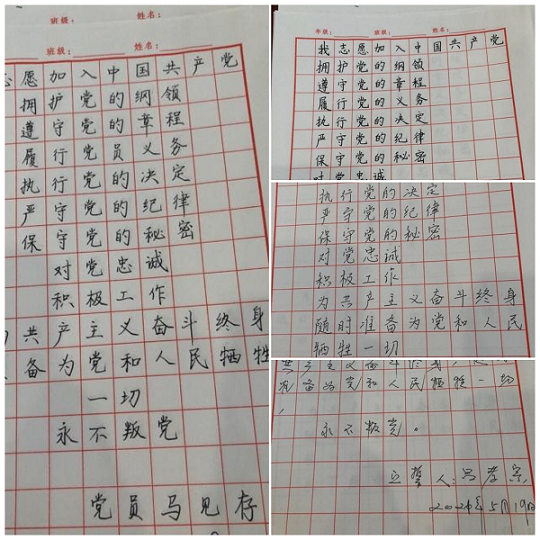 班级： 姓名：
班级： 姓名：
志愿加入中国共产党
拥护党的纲领
遵守党的章程
履行党员义务
执行党的决定
严守党的纪律
保守党的秘密
对党忠诚
积极工作
共产主义奋斗终身
备为党和人民牺牲
一切
永不叛党
党员马见存
年级： 班级： 姓名：
我志愿加入中国共产党
拥护党的纲领
遵守党的章程
履行党的义务
执行党的决定
严守党的纪律
保守党的秘密
对党忠诚
执行党的决定
严守党的纪律
保守党的秘密
对党忠诚
积极工作
为共产主义奋斗终身
随时准备为党和人民
牺牲一切
共产主义奋斗终身，
准备为党和人民牺牲一切
，
永不叛党。
立誓人：
5月19日